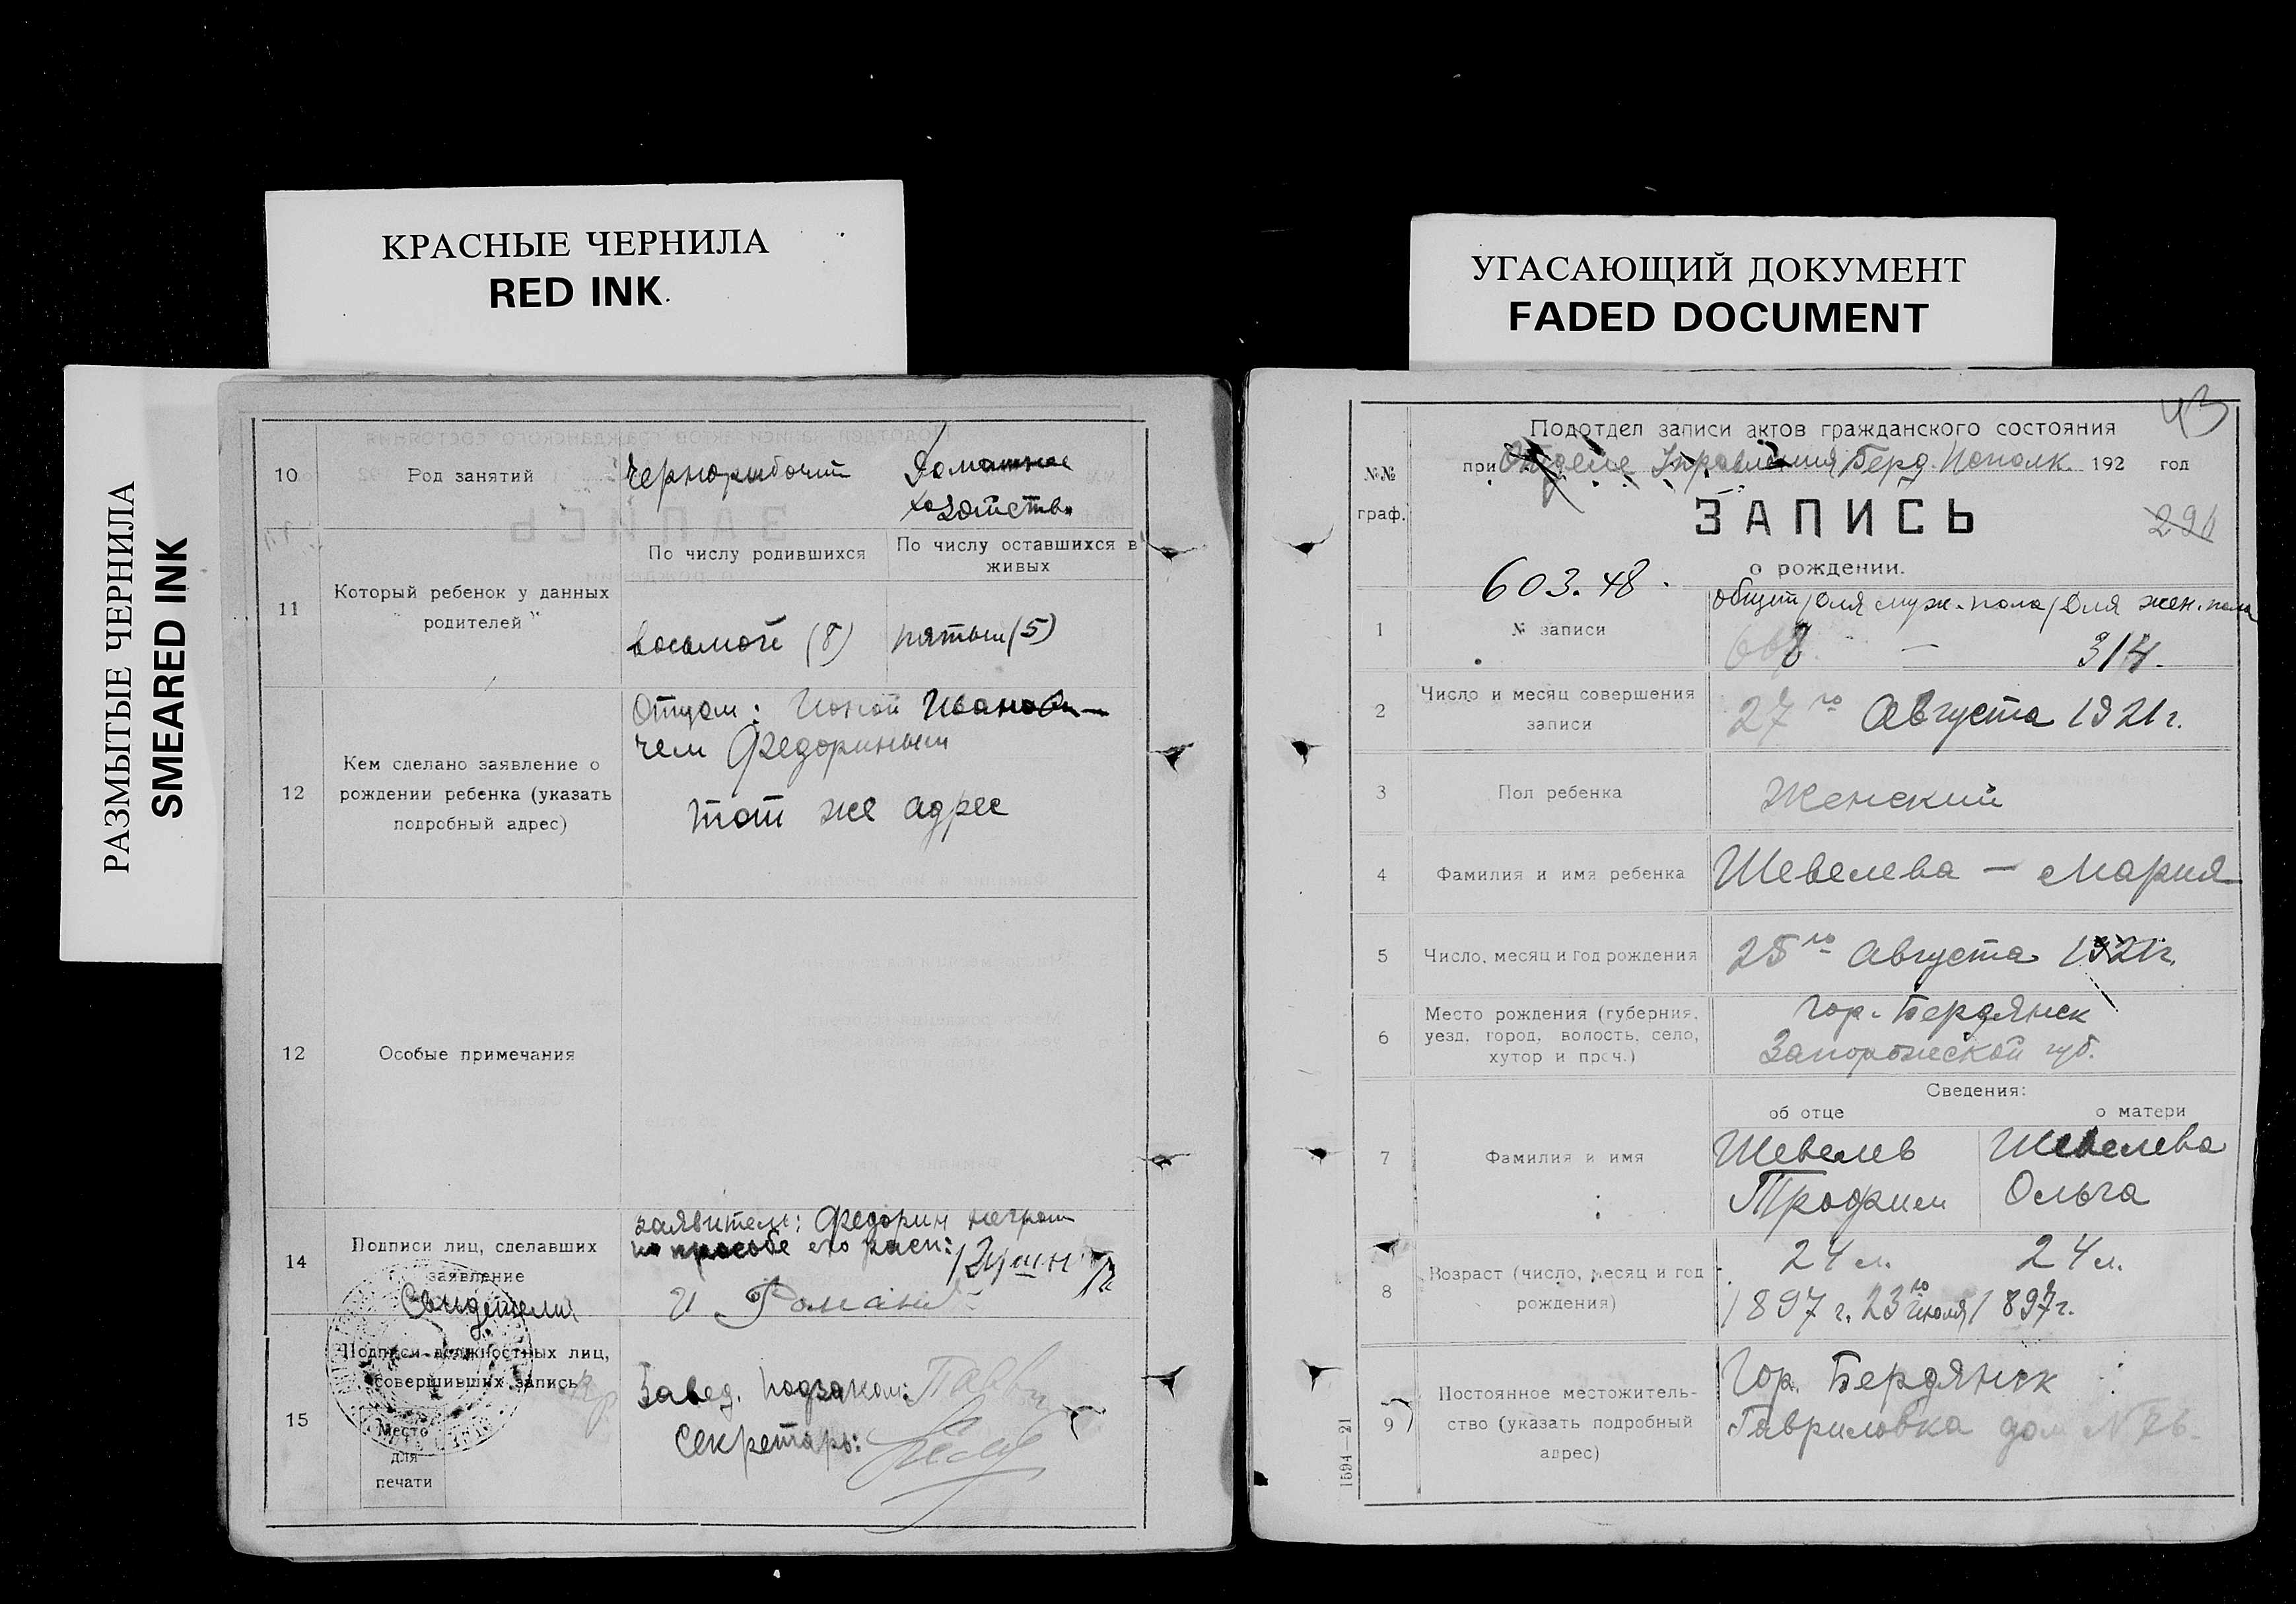 КРАСНЫЕ ЧЕРНИЛА
RED INK
РАЗМЫТЫЕ ЧЕРНИЛА
SMEARED INK
10
Род занятий
Чернорабочий
Домашнее
хозяйство
11
Который ребенок у данных
родителей
По числу родившихся
По числу оставшихся в
живых
восьмой (8)
пятый (5)
12
Кем сделано заявление о
рождении ребенка (указать
подробный адрес)
Отцом: Ионой Иванови-
чем Федориным
тот же адрес
12
Особые примечания
14
Подписи лиц, сделавших
заявление
Свидетели
заявитель: Федорин неграм
по просьбе его расп:
и Роман
15
Подписи должностных лиц,
совершивших запись
Место
для
печати
Завед. подзагом:
Секретарь:
УГАСАЮЩИЙ ДОКУМЕНТ
FADED DOCUMENT
43
№№
граф.
Подотдел записи актов гражданского состояния
при Отделе Управления Берд. Исполк. 192 год
ЗАПИСЬ
296
о рождении.
603. 48.
1
№ записи
общий / для муж. пола / для жен. пола
668 — 314.
2
Число и месяц совершения
записи
27го Августа 1921 г.
3
Пол ребенка
Женский
4
Фамилия и имя ребенка
Шевелева — Мария
5
Число, месяц и год рождения
25го Августа 1921 г.
6
Место рождения (губерния,
уезд, город, волость, село,
хутор и проч.)
Гор. Бердянск
Запорожской губ.
Сведения:
об отце
о матери
7
Фамилия и имя
Шевелев
Трофим
Шевелева
Ольга
8
Возраст (число, месяц и год
рождения)
24 л.
24 л.
1897 г. 23го июля 1897 г.
9
Постоянное местожитель-
ство (указать подробный
адрес)
Гор. Бердянск
Гавриловка дом №
1594—21